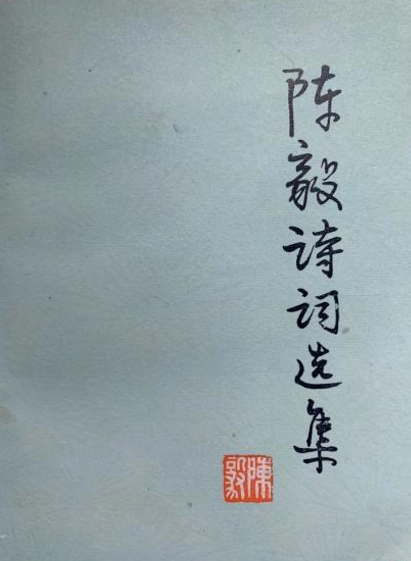 陈毅诗词选集
陳毅